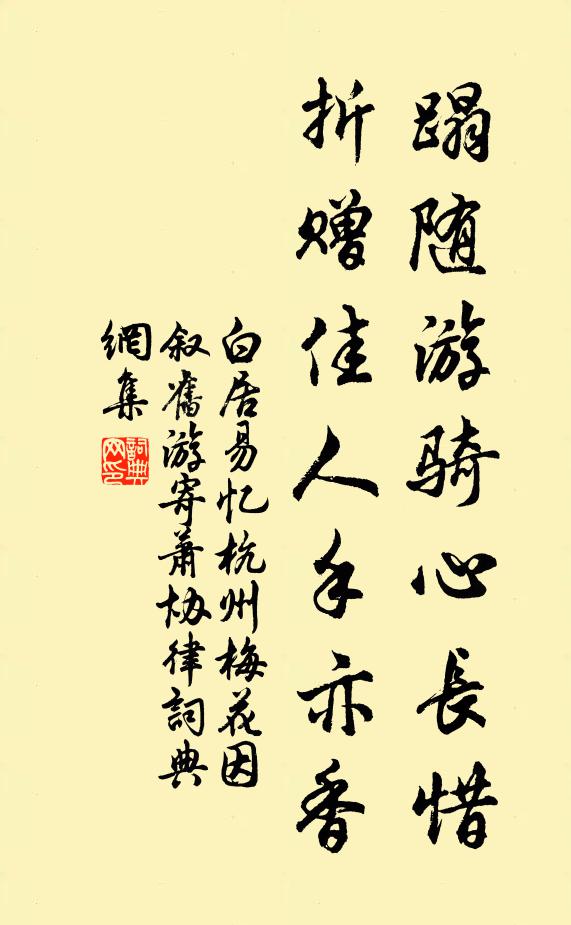 蹋随游骑心長惜
折赠佳人手亦香
白居易忆杭州梅花因
叙舊游寄萧协律詞典
網集
詞典網印